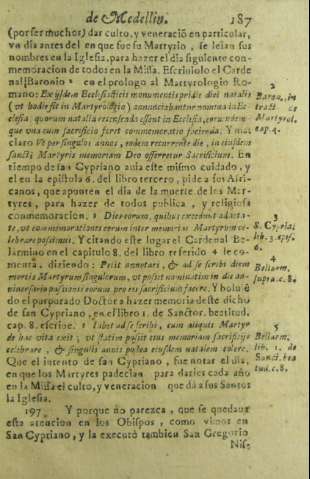 de Medellin. 187
(por ser muchos) dar culto, y veneració en particular,
vn dia antes del en que fue su Martyrio, se leian sus
nombres en la Iglesia, para hazer el dia siguiente con-
memoracion de todos en la Missa. Escriuiolo el Carde
nal Baronio 2 en el prologo al Martyrologio Ro-
mano: Ex ijsdem Ecclesiasticis monumentis pridie diei natalis
(vt hodie fit in Martyrologio) annuntiabantur nomina in Ec-
clesia quorum natalis recensendi essent in Ecclesia, eorundem-
que vna cum sacrificio fieret commemoratio facienda. Y mas
claro Vt per singulos annos, eadem recurrente die, in eiusdem
sancti Martyris memoriam Deo offerretur Sacrificium. En
tiempo de san Cypriano auia este mismo cuidado, y
el en la epistola 6. del libro tercero, pide a los Afri-
canos, que apunten el dia de la muerte de los Mar-
tyres, para hazer de todos publica, y religiosa
conmemoracion. 3 Dies eorum, quibus excedunt adnota-
te, vt commemorationes eorum inter memorias Martyrum ce-
lebrare possimus. Y citando este lugar el Cardenal Be-
larmino en el capitulo 8. del libro referido 4 le co-
menta, diziendo: Petit annotari, & ad se scribi diem
mortis Martyrum singulorum, vt possit
anniversario eorum pro eis sacrificium facere. Y boluiẽ
do el purpurado Doctor a hazer memoria deste dicho
de san Cypriano, en el libro 1. de Sanctor. beatitud.
cap. 8. escriue. 5 Iubet ad se scribi, cum aliquis Martyr
de hac vita exit, vt statim possit eius memoriam sacrificijs
celebrare, & singulis annis postea eiusdem natalem colere.
Que el intento de san Cypriano, fue notar el dia,
en que los Martyres padecian para darles cada año
en la Missa el culto, y veneracion que dà a sus Santos
la Iglesia.
197 Y porque no parezca, que se quedaua
esta atencion en los Obispos, como vimos en
San Cypriano, y la executó tambien San Gregorio
Nisse
2
Baron. in
tract. de
Martyrol.
cap. 4.
3
S. Cypria.
lib. 3. epist.
6.
4
Bellarm.
supra c. 8.
5
Bellarm.
lib. 1. de
Sanct. bea
titud. c. 8.